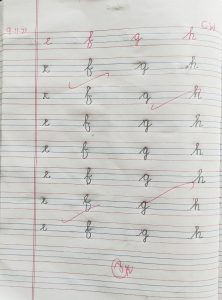 C.W
e f g h
e f g h
e f g h
e f g h
e f g h
e f g h
e f g h
e f g h